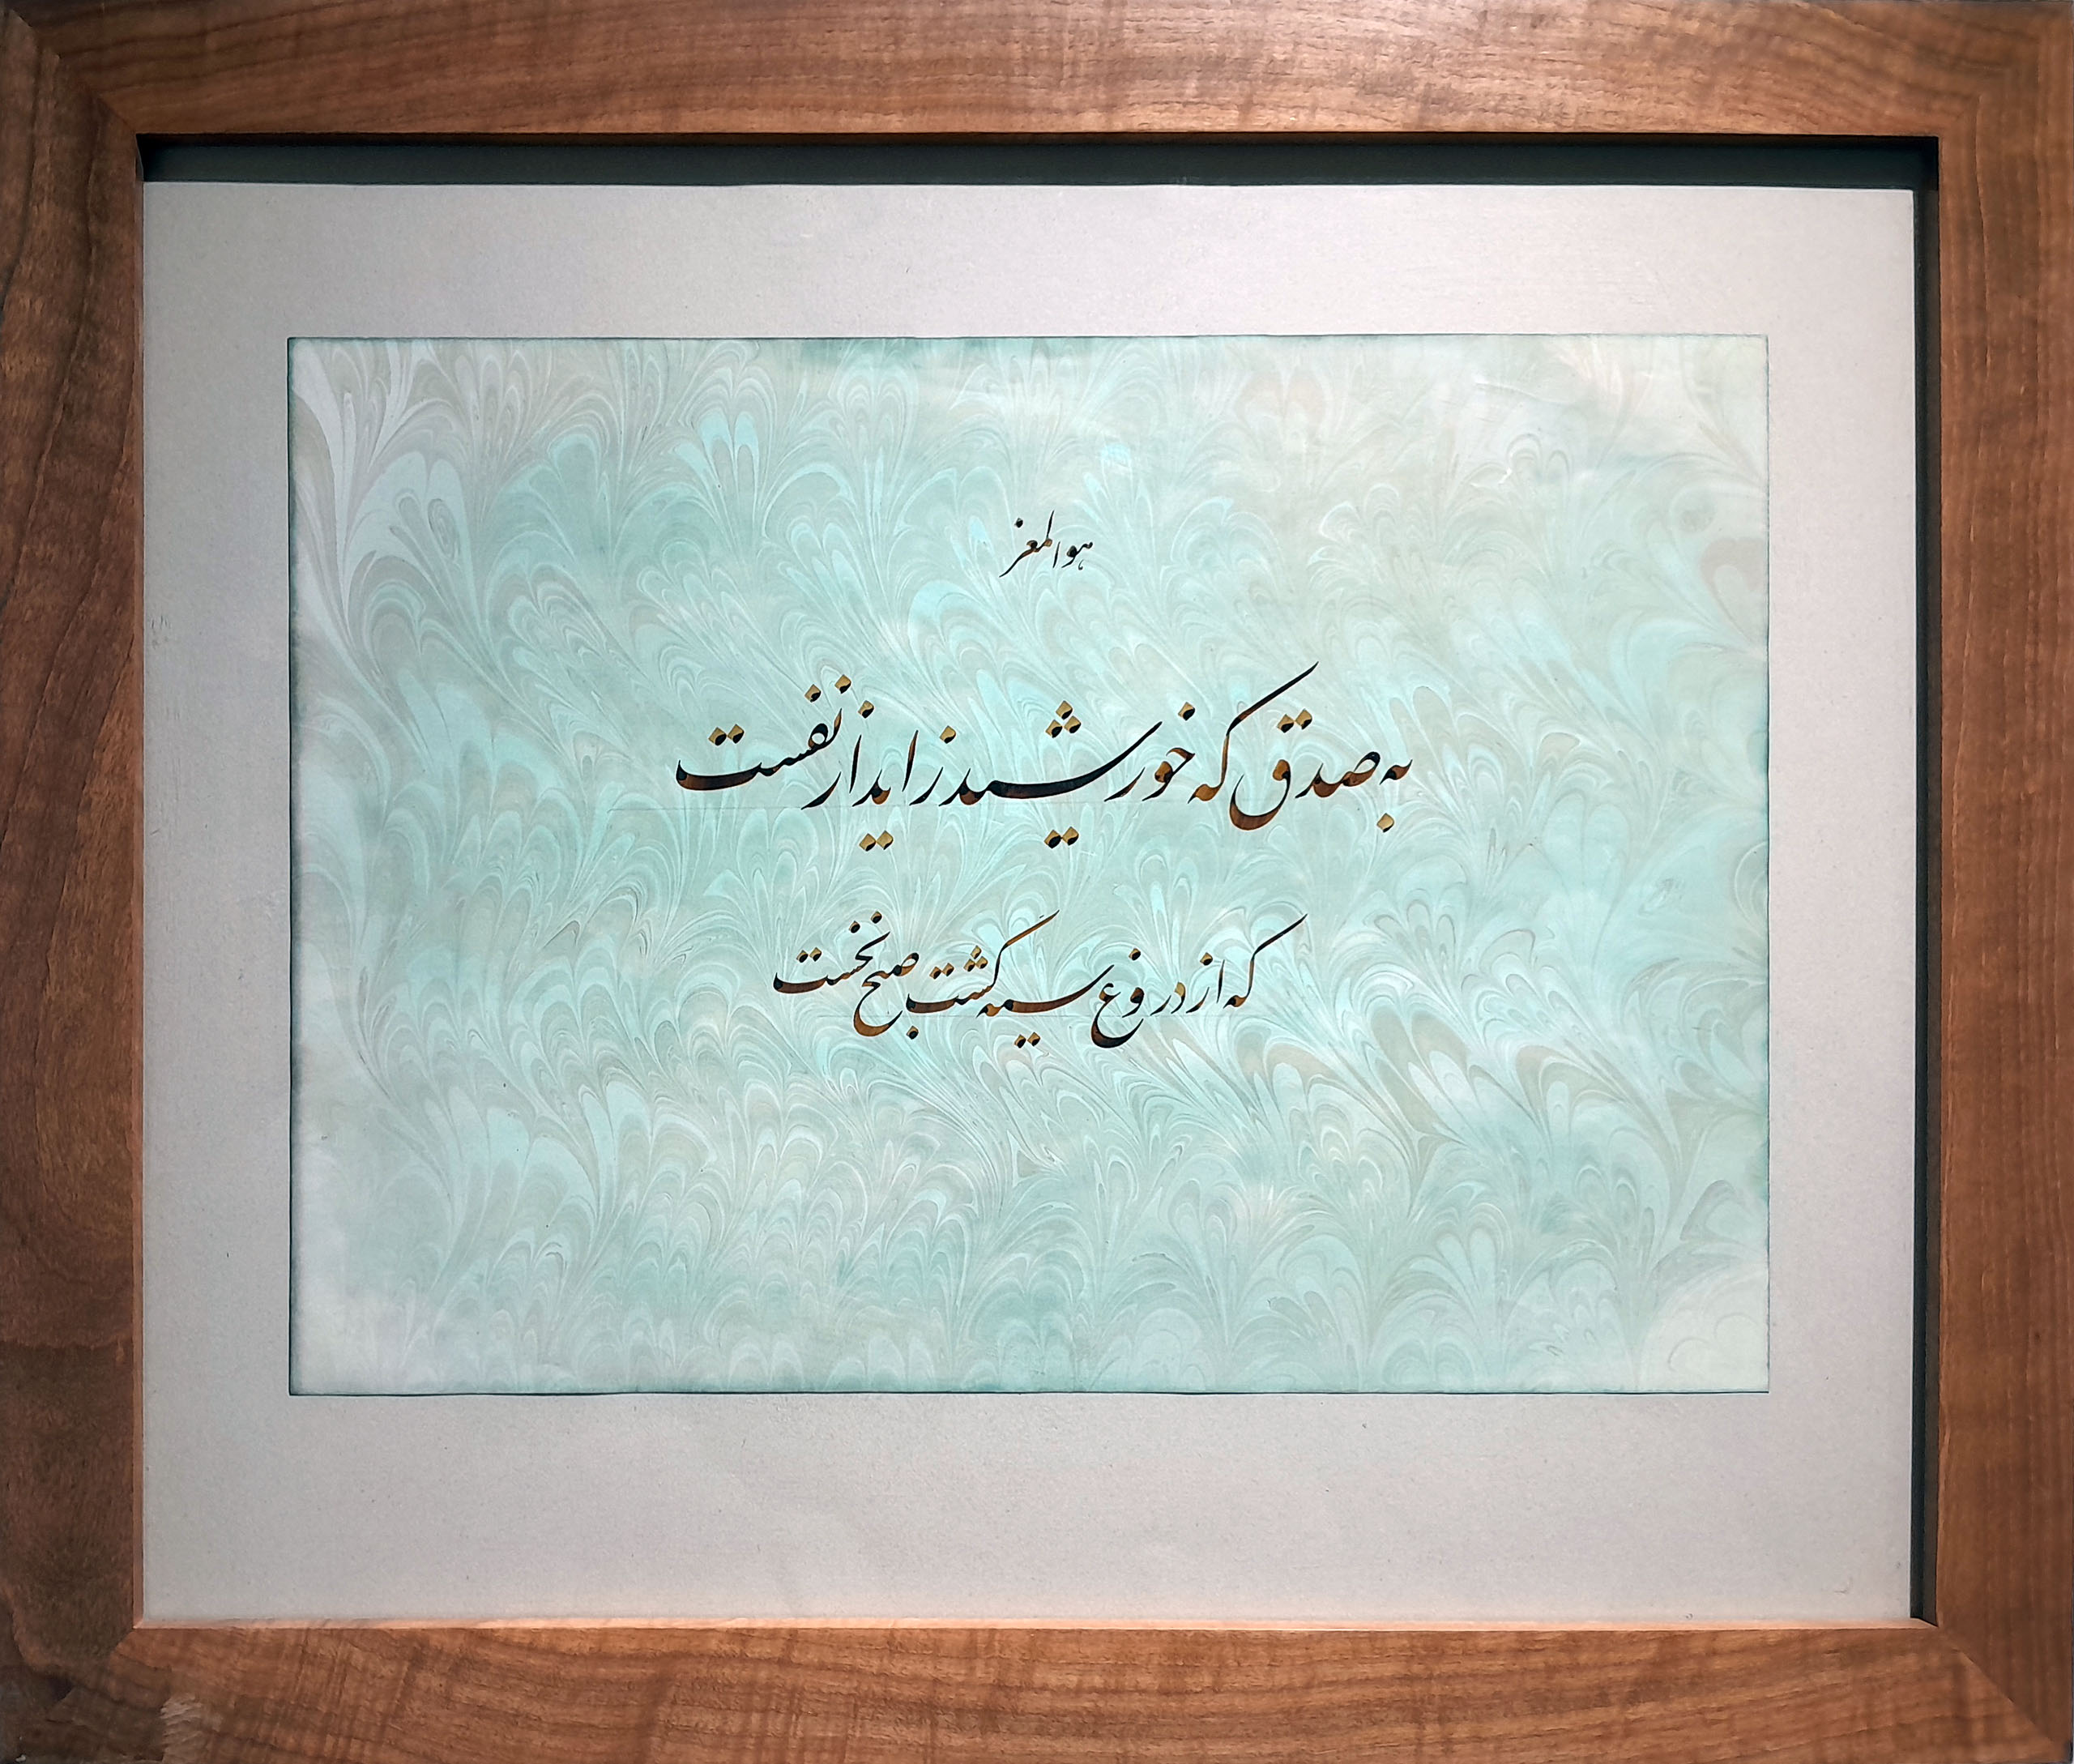 هوالمعز
به صدق که خورشید زاید از نفست
که از دروغ سیه گشت صبح نخست